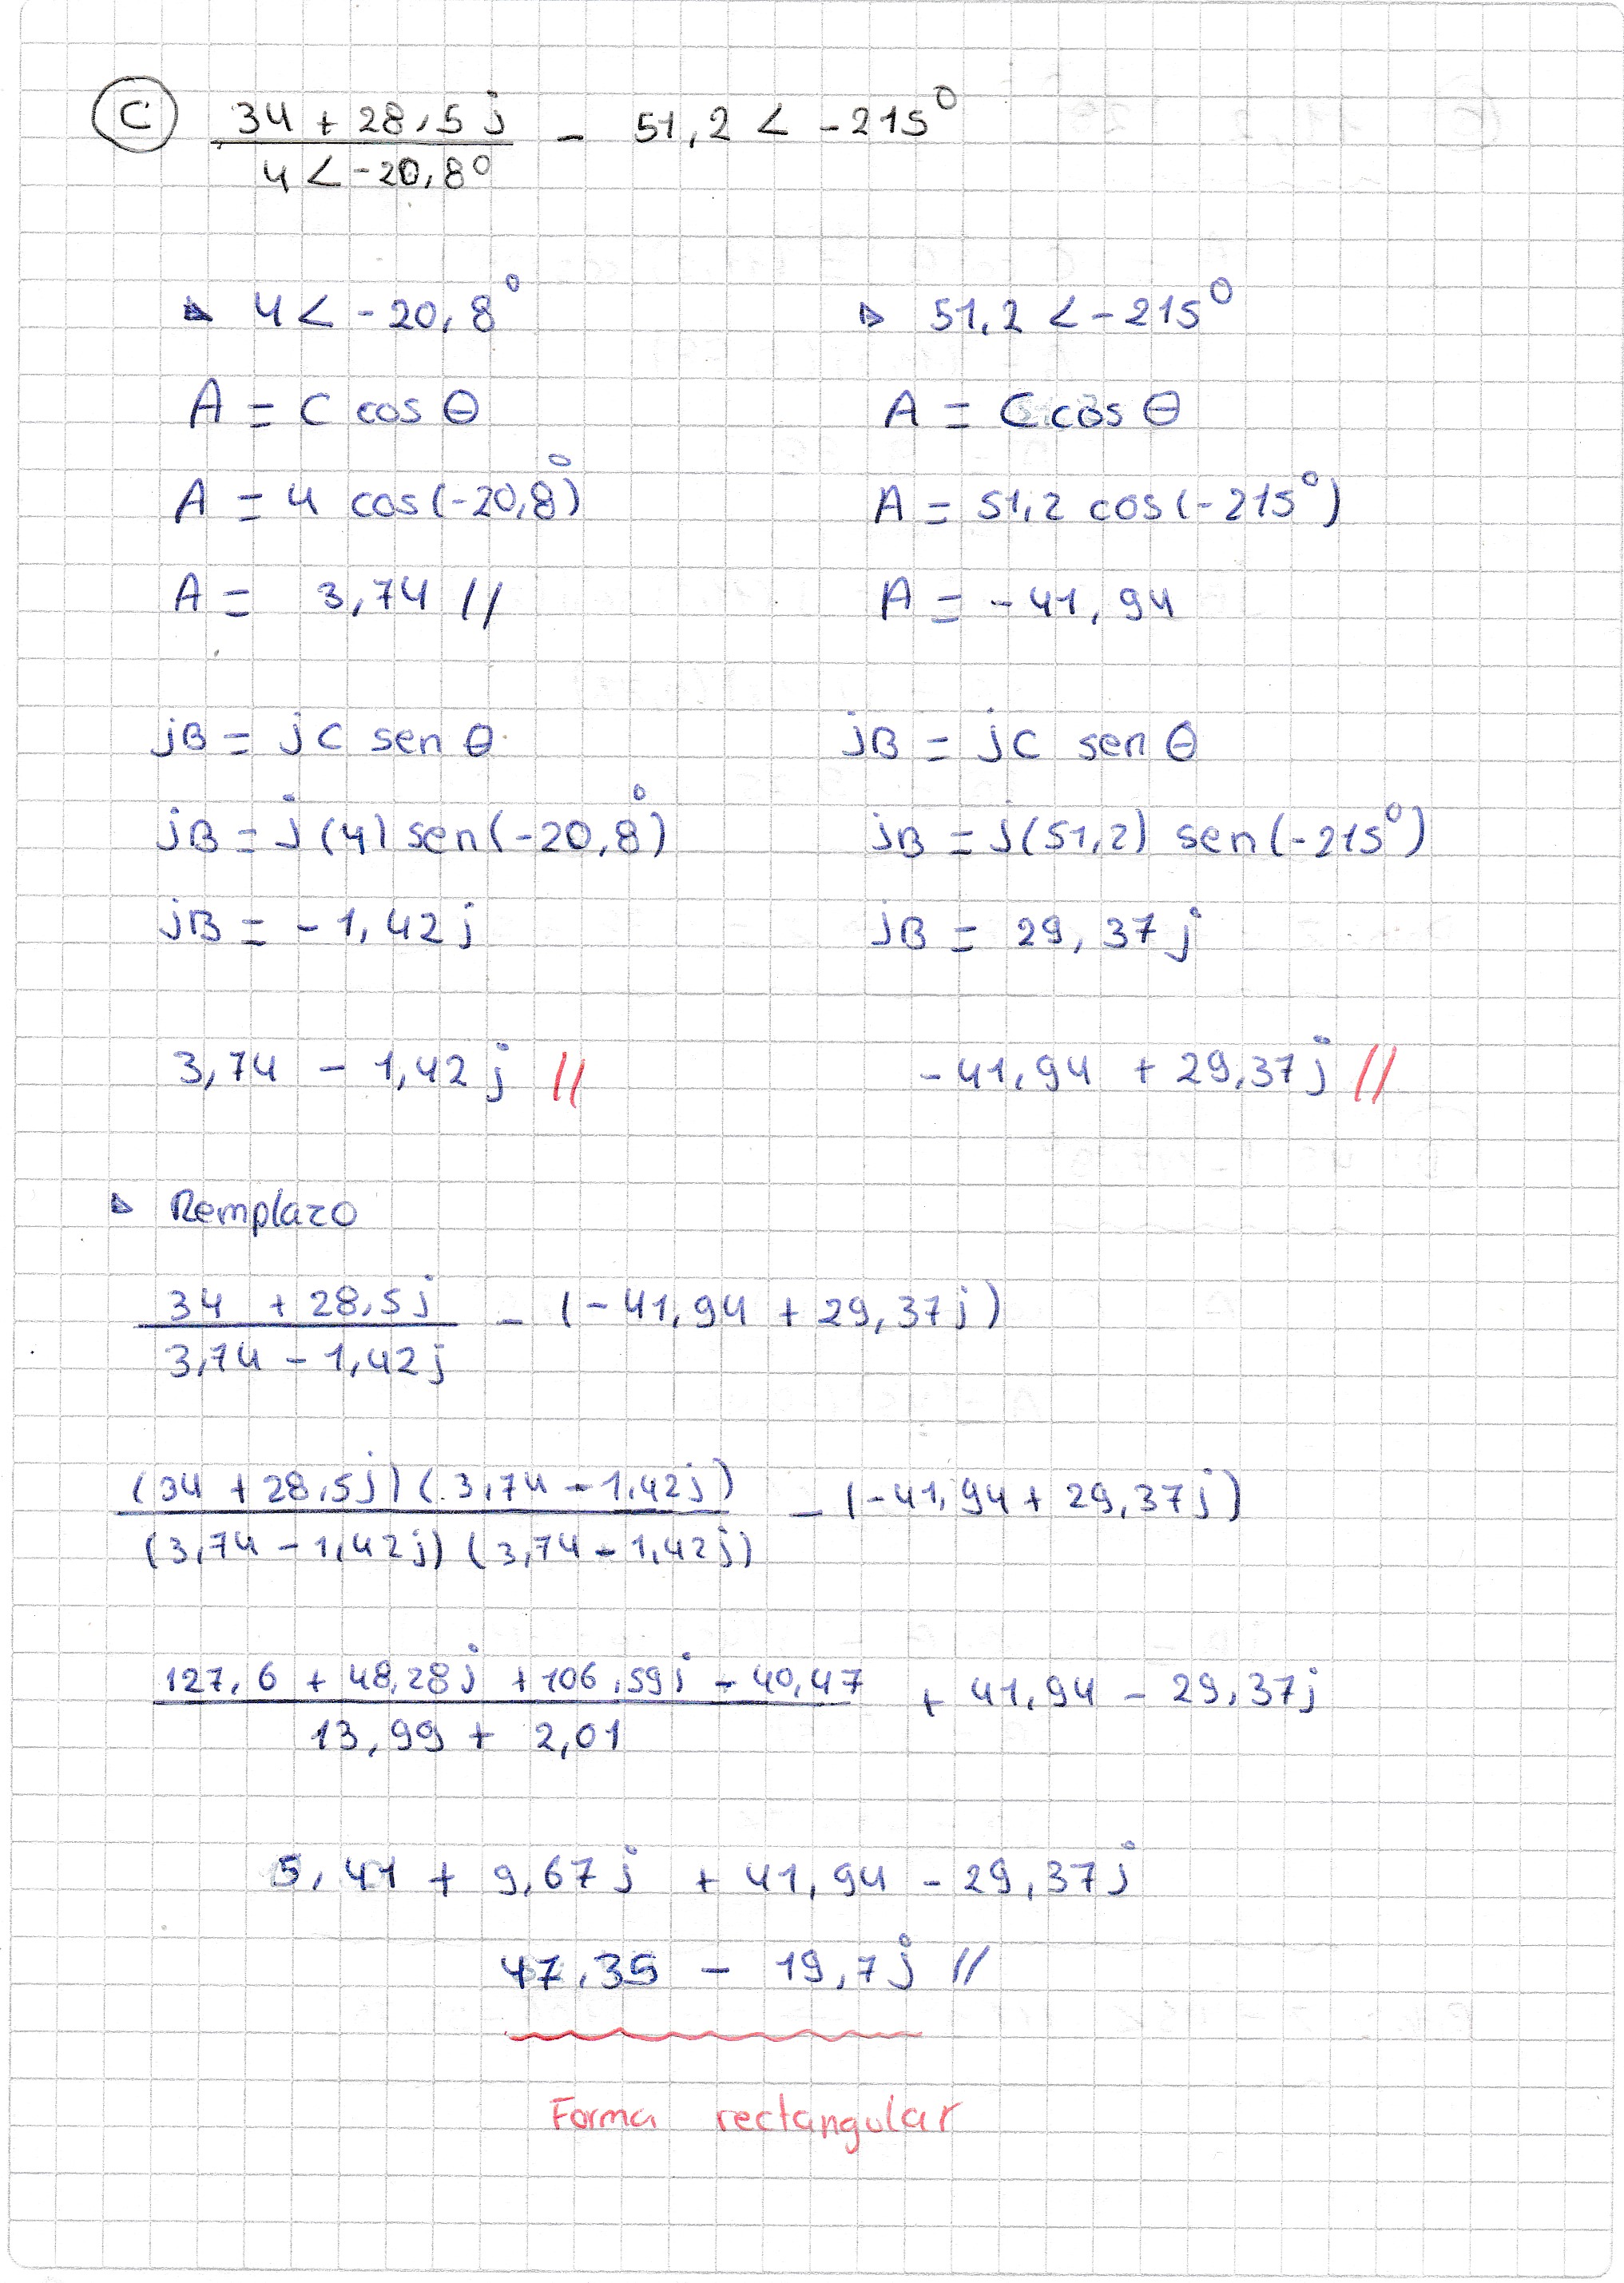 C 34 + 28,5 j / 4 < -20,8° - 51,2 < -215°
4 < -20,8°
A = C cos θ
A = 4 cos(-20,8°)
A = 3,74 //
jB = jC sen θ
jB = j(4) sen(-20,8°)
jB = -1,42 j
3,74 - 1,42 j //
51,2 < -215°
A = C cos θ
A = 51,2 cos(-215°)
A = -41,94
jB = jC sen θ
jB = j(51,2) sen(-215°)
jB = 29,37 j
-41,94 + 29,37 j //
Remplazo
34 + 28,5 j / 3,74 - 1,42 j - (-41,94 + 29,37 j)
(34 + 28,5 j) (3,74 - 1,42 j) / (3,74 - 1,42 j) (3,74 - 1,42 j) - (-41,94 + 29,37 j)
127,6 + 48,28 j + 106,59 j - 40,47 / 13,99 + 2,01 + 41,94 - 29,37 j
5,41 + 9,67 j + 41,94 - 29,37 j
47,35 - 19,7 j //
Forma rectangular